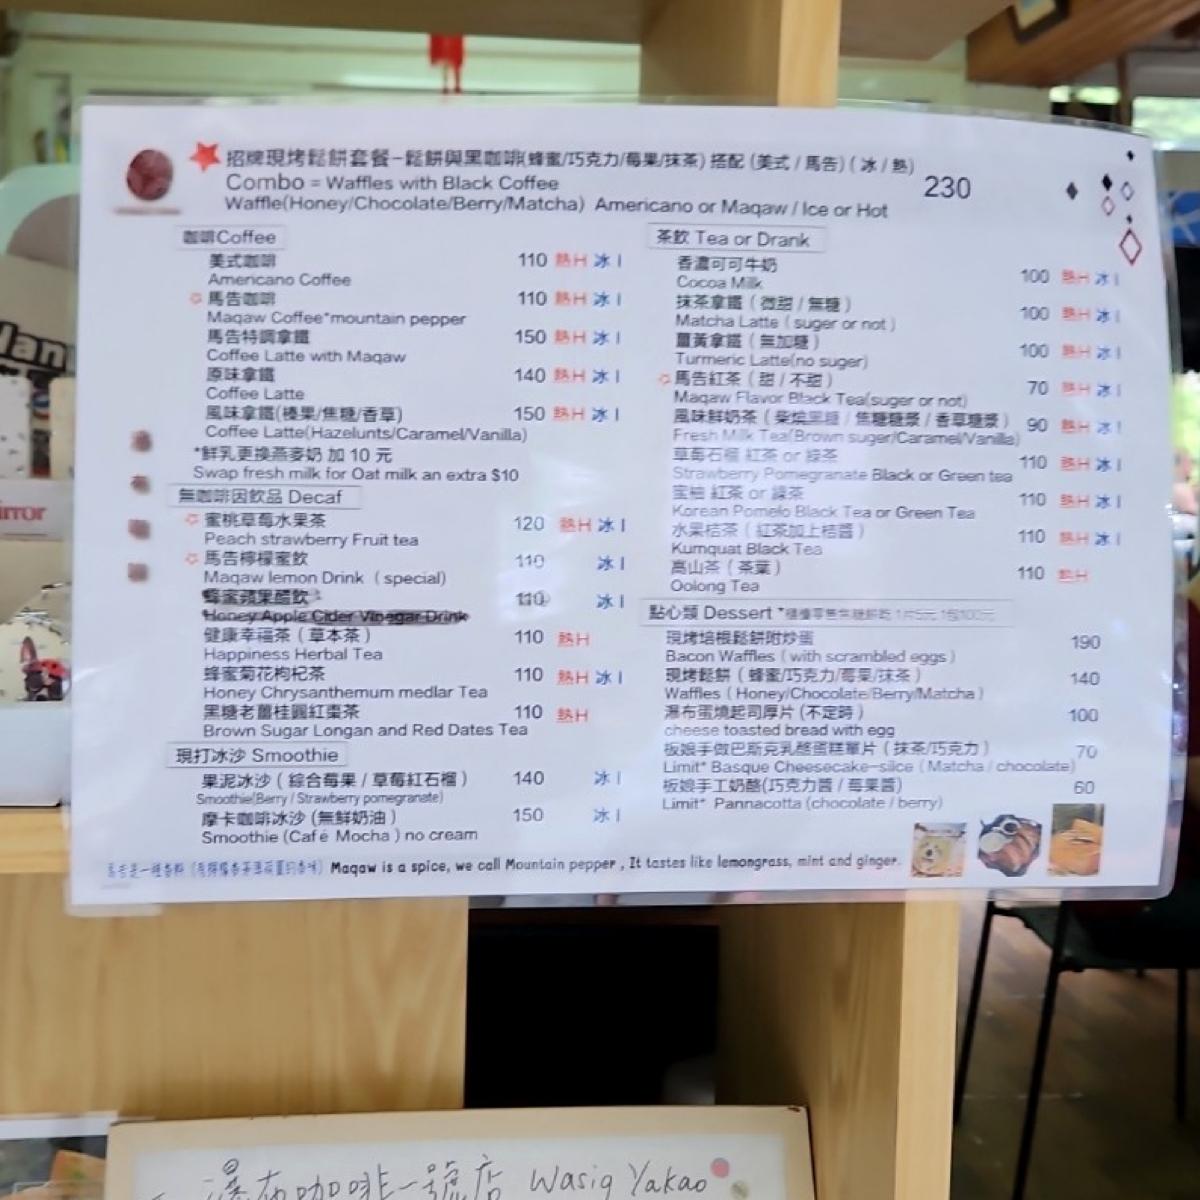 招牌現烤鬆餅套餐-鬆餅與黑咖啡(蜂蜜/巧克力/莓果/抹茶) 搭配 (美式 / 馬告) ( 冰 / 熱) 230
Combo = Waffles with Black Coffee
Waffle(Honey/Chocolate/Berry/Matcha) Americano or Maqaw / Ice or Hot
咖啡Coffee
美式咖啡 110 熱H 冰 I
Americano Coffee
馬告咖啡 110 熱H 冰 I
Maqaw Coffee*mountain pepper
馬告特調拿鐵 150 熱H 冰 I
Coffee Latte with Maqaw
原味拿鐵 140 熱H 冰 I
Coffee Latte
風味拿鐵(榛果/焦糖/香草) 150 熱H 冰 I
Coffee Latte(Hazelunts/Caramel/Vanilla)
*鮮乳更換燕麥奶 加 10 元
Swap fresh milk for Oat milk an extra $10
無咖啡因飲品 Decaf
蜜桃草莓水果茶 120 熱H 冰 I
Peach strawberry Fruit tea
馬告檸檬蜜飲 110 冰 I
Maqaw lemon Drink ( special)
蜂蜜蘋果醋飲 110 冰 I
Honey Apple Cider Vinegar Drink
健康幸福茶 ( 草本茶 ) 110 熱H
Happiness Herbal Tea
蜂蜜菊花枸杞茶 110 熱H 冰 I
Honey Chrysanthemum medlar Tea
黑糖老薑桂圓紅棗茶 110 熱H
Brown Sugar Longan and Red Dates Tea
現打冰沙 Smoothie
果泥冰沙 ( 綜合莓果 / 草莓紅石榴 ) 140 冰 I
Smoothie(Berry / Strawberry pomegranate)
摩卡咖啡冰沙 (無鮮奶油 ) 150 冰 I
Smoothie (Café Mocha ) no cream
茶飲 Tea or Drank
香濃可可牛奶 100 熱H 冰 I
Cocoa Milk
抹茶拿鐵 ( 微甜 / 無糖 ) 100 熱H 冰 I
Matcha Latte ( suger or not )
薑黃拿鐵 ( 無加糖 ) 100 熱H 冰 I
Turmeric Latte(no suger)
馬告紅茶 ( 甜 / 不甜 ) 70 熱H 冰 I
Maqaw Flavor Black Tea(suger or not)
風味鮮奶茶 ( 柴燒黑糖 / 焦糖糖漿 / 香草糖漿 ) 90 熱H 冰 I
Fresh Milk Tea(Brown suger/Caramel/Vanilla)
草莓石榴 紅茶 or 綠茶 110 熱H 冰 I
Strawberry Pomegranate Black or Green tea
蜜柚 紅茶 or 綠茶 110 熱H 冰 I
Korean Pomelo Black Tea or Green Tea
水果桔茶 ( 紅茶加上桔醬 ) 110 熱H 冰 I
Kumquat Black Tea
高山茶 ( 茶葉 ) 110 熱H
Oolong Tea
點心類 Dessert
現烤培根鬆餅附炒蛋 190
Bacon Waffles ( with scrambled eggs )
現烤鬆餅 ( 蜂蜜/巧克力/莓果/抹茶 ) 140
Waffles ( Honey/Chocolate/Berry/Matcha )
瀑布蛋燒起司厚片 (不定時 ) 100
cheese toasted bread with egg
板娘手做巴斯克乳酪蛋糕單片 ( 抹茶/巧克力 ) 70
Limit* Basque Cheesecake-slice ( Matcha / chocolate)
板娘手工奶酪(巧克力醬 / 莓果醬) 60
Limit* Pannacotta (chocolate / berry)
馬告是一種香料 Maqaw is a spice, we call Mountain pepper , It tastes like lemongrass, mint and ginger.
瀑布咖啡一號店 Wasiq Yakao